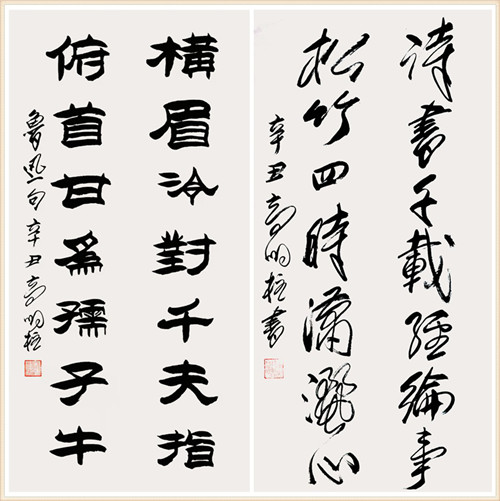 诗書千載經綸事
松竹四時潇灑心
辛丑高明柱書
橫眉冷對千夫指
俯首甘為孺子牛
魯迅句辛丑高明柱